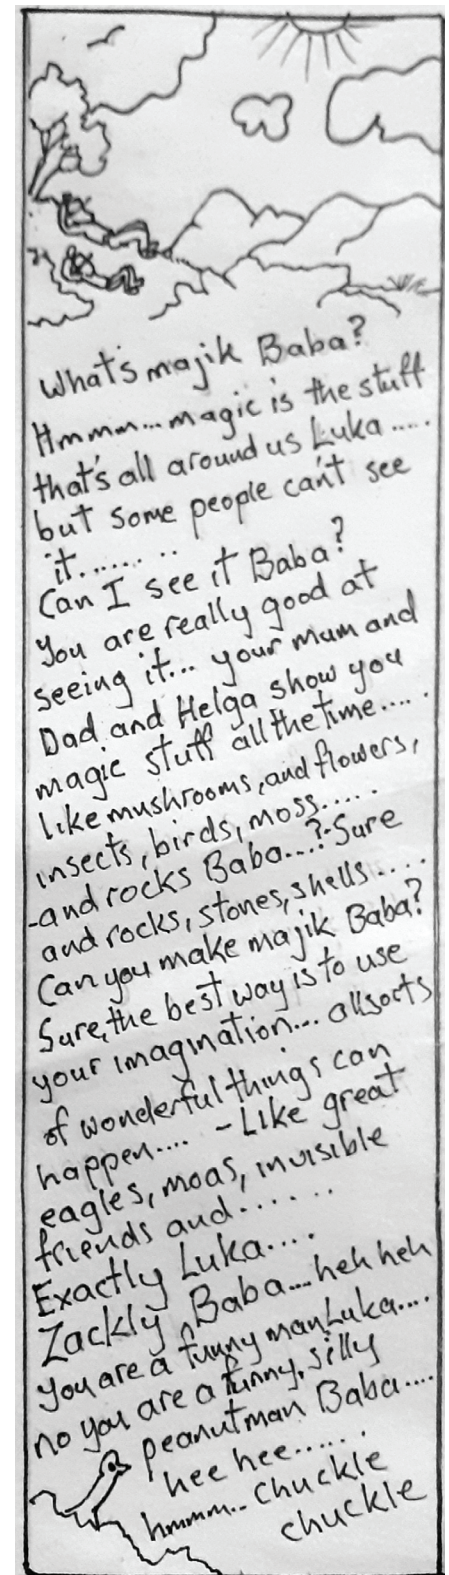 What's majik Baba?
Hmmm... magic is the stuff
that's all around us Luka.....
but some people can't see
it.........
Can I see it Baba?
You are really good at
seeing it... your mum and
Dad and Helga show you
magic stuff all the time.....
like mushrooms, and flowers,
insects, birds, moss.....
-and rocks Baba...?-Sure
and rocks, stones, shells.....
Can you make majik Baba?
Sure, the best way is to use
your imagination... allsorts
of wonderful things can
happen.... - Like great
eagles, moas, invisible
friends and.......
Exactly Luka....
Zackly Baba....heh heh
You are a funny man Luka....
no you are a funny, silly
peanutman Baba....
hee hee......
hmmm.. chuckle
chuckle